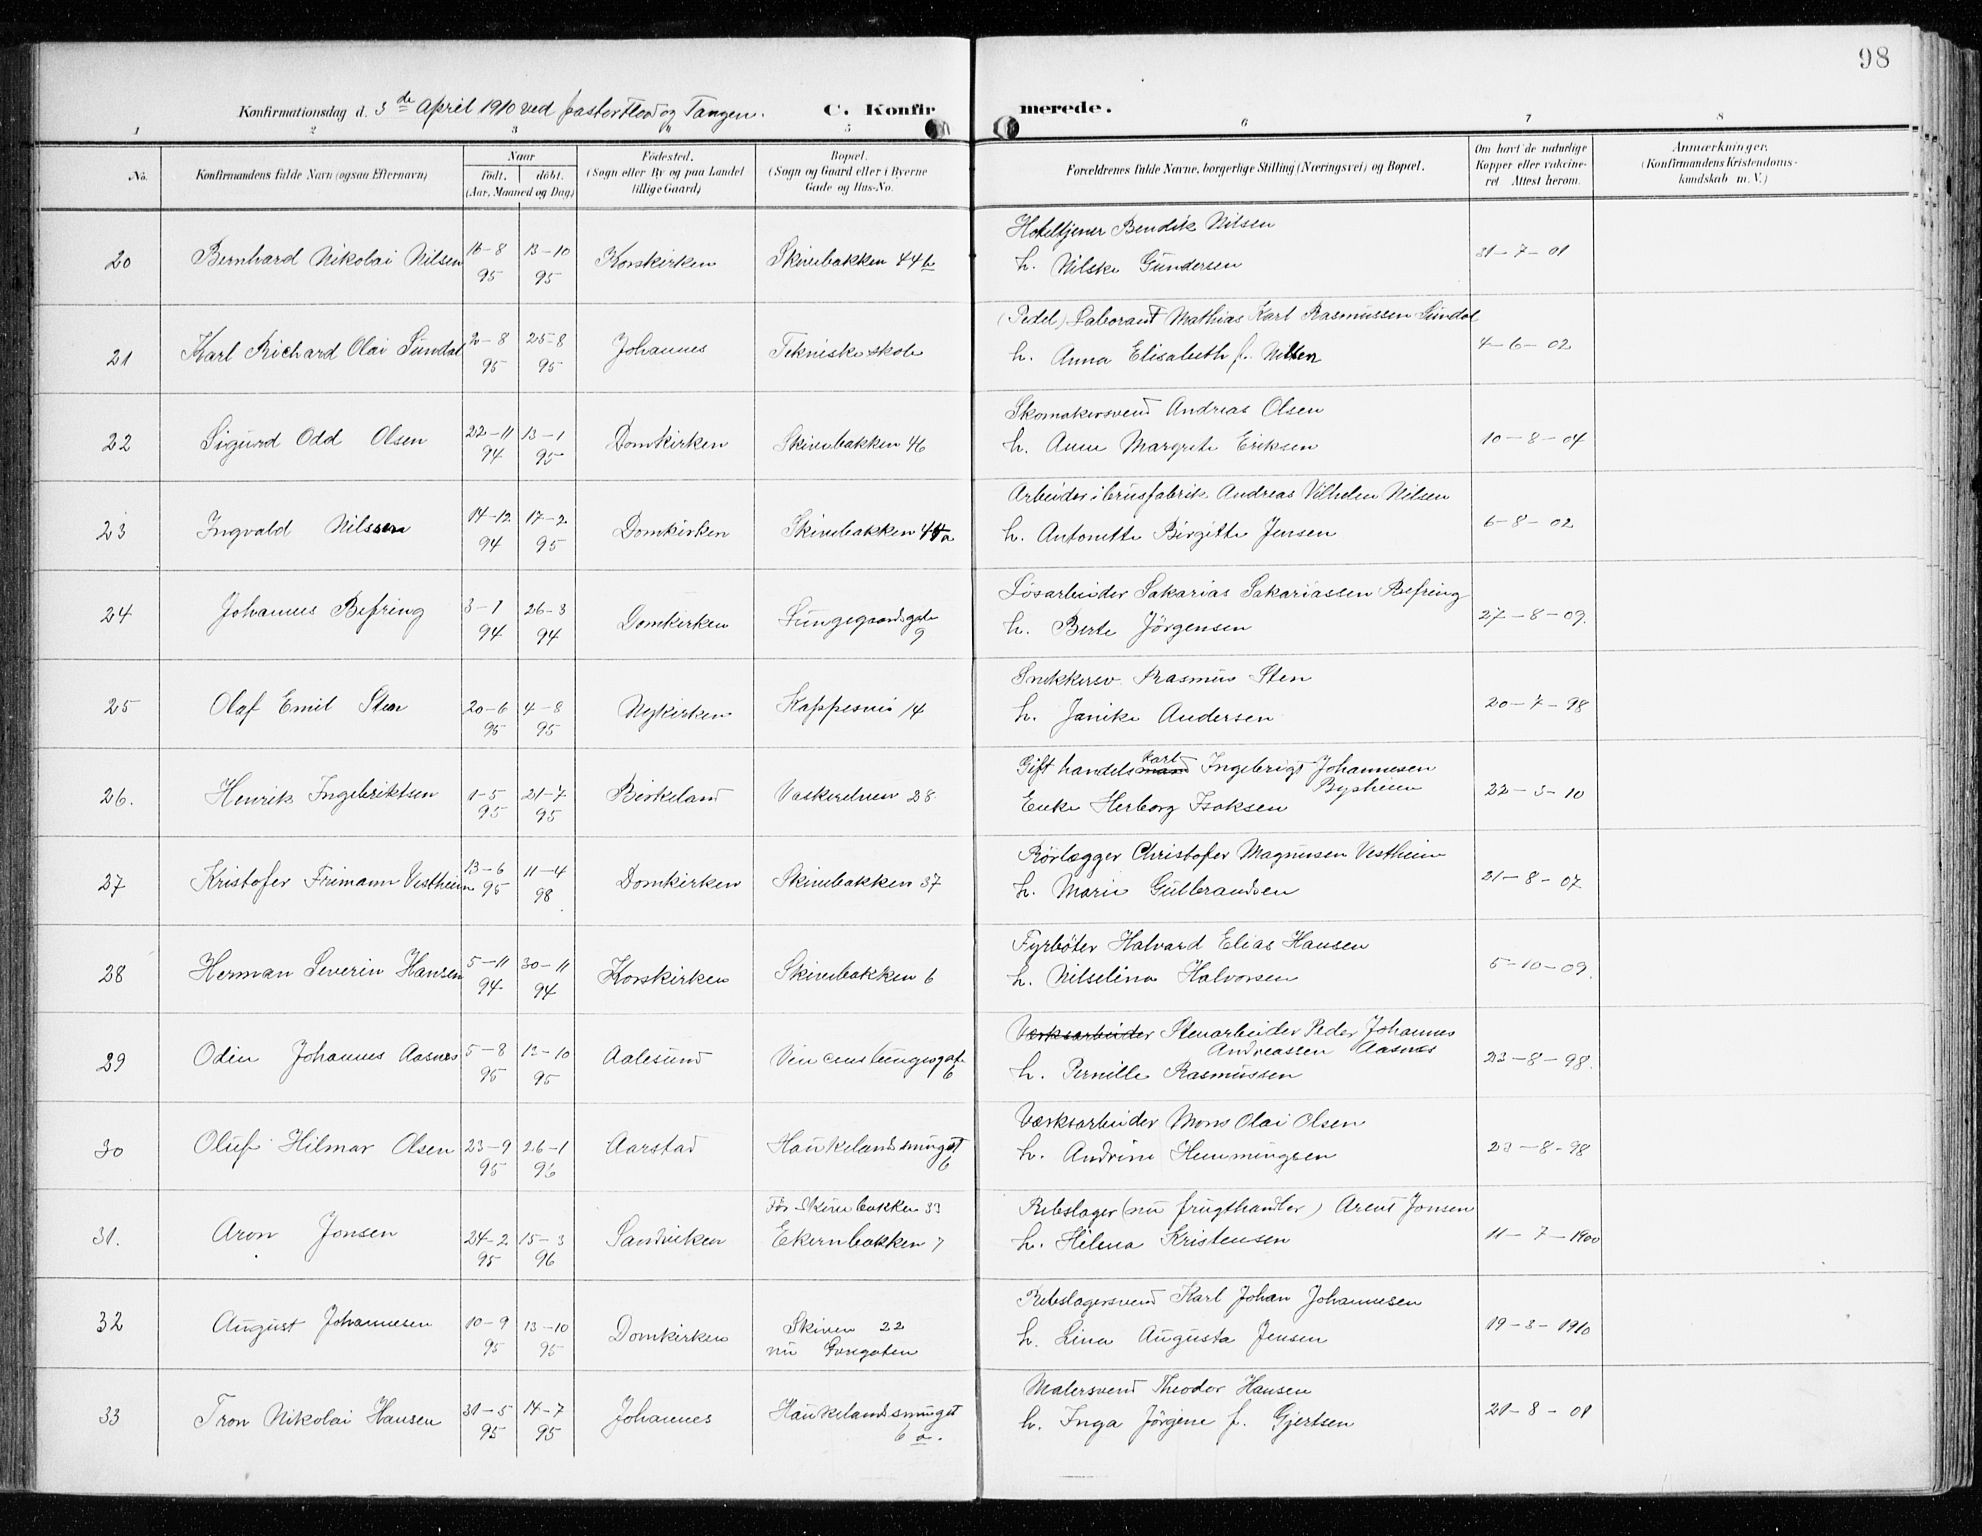 98
Konfirmationsdag d. 3de April 1910 ved pastor Flood og Tangen. C. Konfirmerede.
1 2 3 4 5 6 7 8
No. Konfirmandens fulde Navn (ogsaa Efternavn) Naar født, døbt. (Aar, Maaned og Dag) Fødested. (Sogn eller By og paa Landet tillige Gaard) Bopæl. (Sogn og Gaard eller i Byerne Gade og Hus-No. Forældrenes fulde Navne, borgerlige Stilling (Næringsvei) og Bopæl. Om havt de naturlige Kopper eller vaccineret Attest herom. Anmærkninger. (Konfirmandens Kristendomskundskab m. V.)
20 Bernhard Nikolai Nilsen 16-8 95 13-10 95 Korskirken Skivebakken 44b Hoteltjener Bendik Nilsen
h. Nilske Gundersen 31-7-01
21 Karl Richard Olai Sundal 2-8 95 25-8 95 Johannes Tekniske skole (Pedel) Laborant Mathias Karl Rasmussen Sundal
h. Anna Elisabeth f. Nilsen 4-6-02
22 Sigurd Odd Olsen 22-11 94 13-1 95 Domkirken Skivebakken 46 Skomakersvend Andreas Olsen
h. Anne Margrete Eriksen 10-8-04
23 Ingvald Nilssen 14-12 94 17-2 95 Domkirken Skivebakken 44a Arbeider i brusfabrik Andreas Vilhelm Nilsen
h. Antonette Birgitte Jensen 6-8-02
24 Johannes Befring 3-1 94 26-3 94 Domkirken Lungegaardsgate 9 Løsarbeider Sakarias Sakariassen Befring
h. Berte Jørgensen 27-8-09.
25 Olaf Emil Sten 20-6 95 4-8 95 Nykirken Kappesvei 14 Snekkersv. Rasmus Sten
h. Janike Andersen 20-7-98
26. Henrik Ingebriktsen 1-5 95 21-7 95 Birkeland Vaskerelven 28. Gift handelsmand karl Ingebrigt Johannesen Bysheim
Enke Herborg Isaksen 22-3-10
27 Kristofer Frimann Vestheim 13-6 95 11-4 98 Domkirken Skivebakken 37 Rørlægger Christofer Magnusen Vestheim
h. Marie Gulbrandsen 21-8-07.
28 Herman Severin Hansen 5-11 94 30-11 94 Korskirken Skivebakken 6 Fyrbøter Halvard Elias Hansen
h. Nilselina Halvorsen 5-10-09.
29 Odin Johannes Aasnes 5-8 95 13-10 95 Aalesund Vincens Lungesgate 6 Værksarbeider Stenarbeider Peder Johannes Andreassen Aasnes
h. Pernille Rasmussen 23-8-98.
30 Oluf Hilmar Olsen 23-9 95 26-1 96 Aarstad Haukelandssmuget 6 Værksarbeider Mons Olai Olsen
h. Andrine Hemmingsen 23-8-98
31. Aron Jonsen 24-2 95 15-3 96 Sandviken Før Skivebakken 33
Ekernbakken 7 Rebslager (nu frugthandler) Arent Jonsen
h. Helena Kristensen 11-7-1900
32 August Johannesen 10-9 95 13-10 95 Domkirken Skiven 22
nu Gongaten Rebslagersvend Karl Johan Johannesen
h. Lina Augusta Jensen 19-3-1910
33 Tron Nikolai Hansen 31-5 95 14-7 95 Johannes Haukelandssmuget 6a. Malersvend Theodor Hansen
h. Inga Jørgine f. Gjertsen 21-8-01